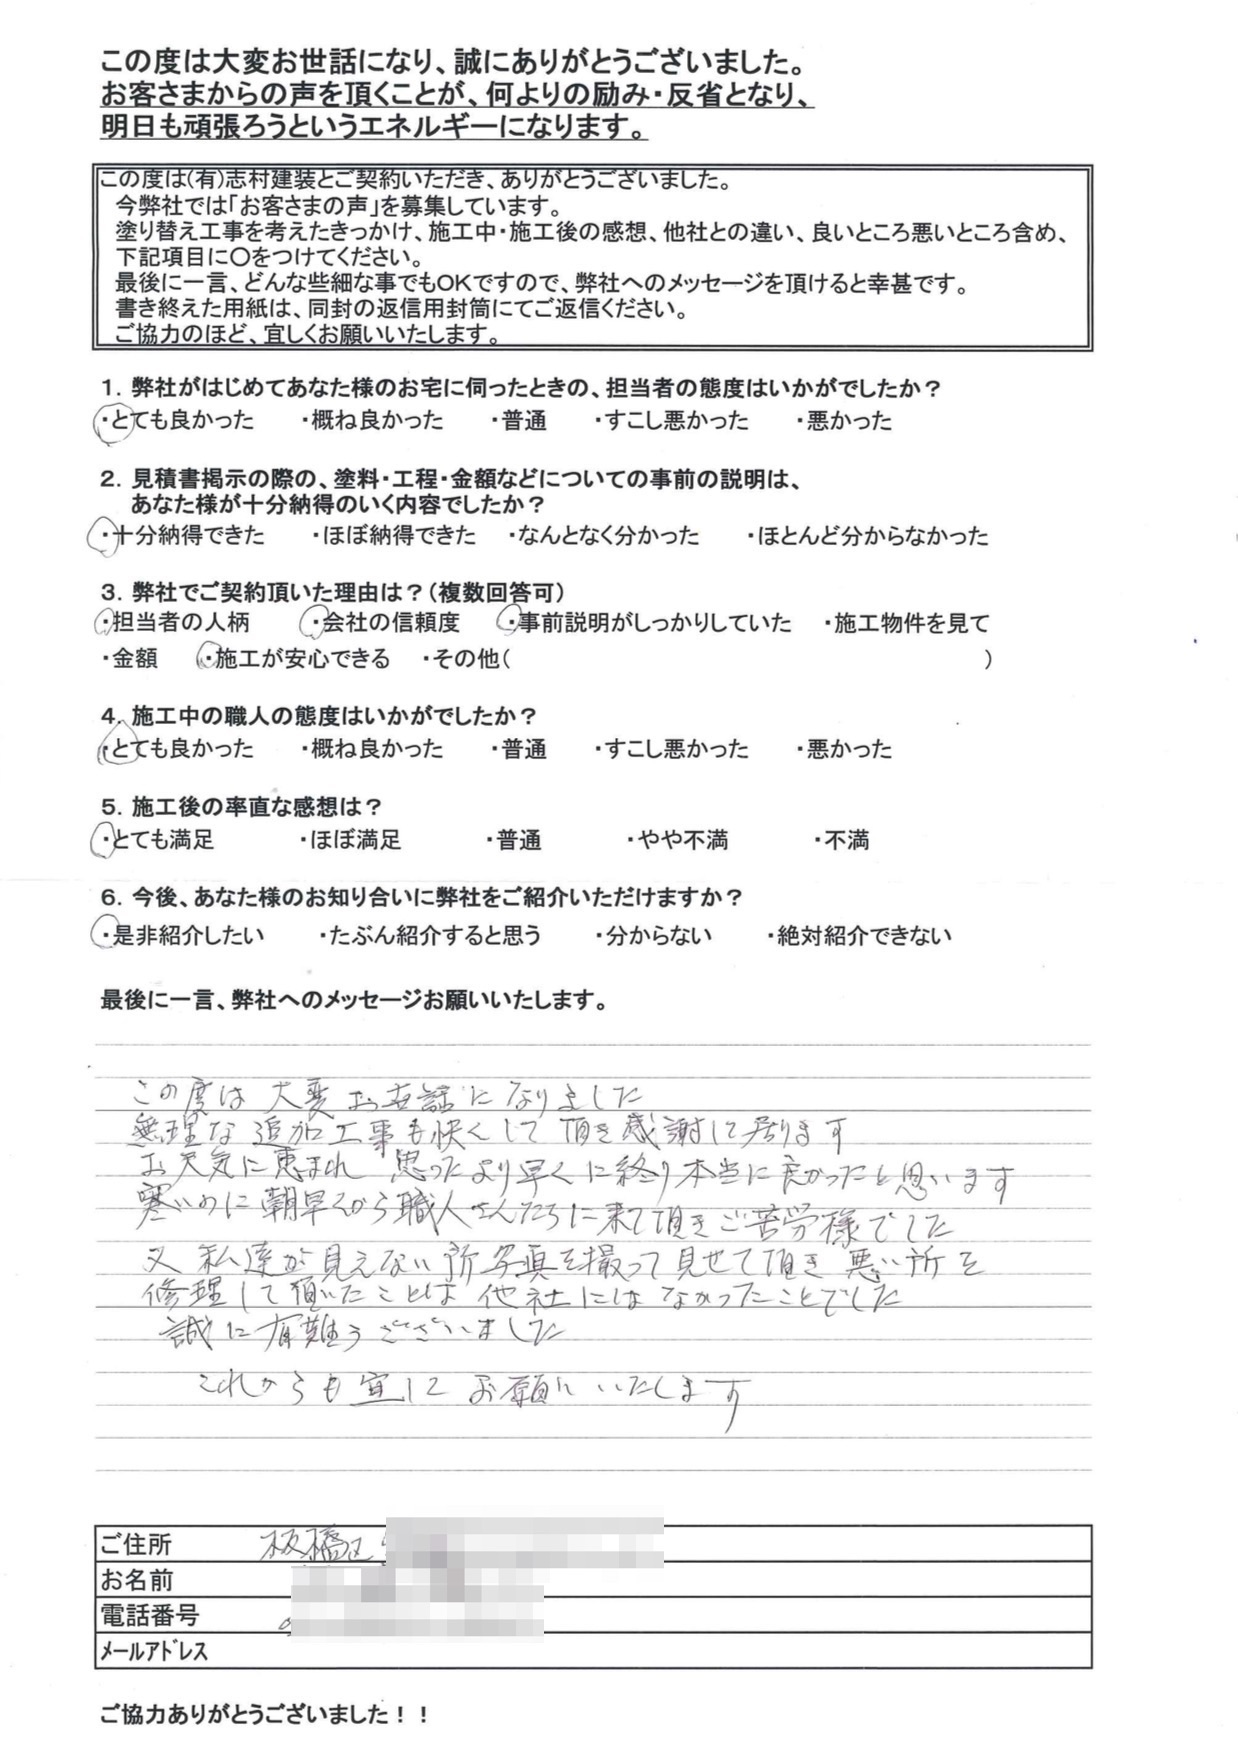 この度は大変お世話になり、誠にありがとうございました。
お客さまからの声を頂くことが、何よりの励み・反省となり、
明日も頑張ろうというエネルギーになります。
この度は(有)志村建装とご契約いただき、ありがとうございました。
今弊社では「お客さまの声」を募集しています。
塗り替え工事を考えたきっかけ、施工中・施工後の感想、他社との違い、良いところ悪いところ含め、
下記項目に〇をつけてください。
最後に一言、どんな些細な事でもOKですので、弊社へのメッセージを頂けると幸甚です。
書き終えた用紙は、同封の返信用封筒にてご返信ください。
ご協力のほど、宜しくお願いいたします。
1. 弊社がはじめてあなた様のお宅に伺ったときの、担当者の態度はいかがでしたか？
・とても良かった ・概ね良かった ・普通 ・すこし悪かった ・悪かった
2. 見積書掲示の際の、塗料・工程・金額などについての事前の説明は、
あなた様が十分納得のいく内容でしたか？
・十分納得できた ・ほぼ納得できた ・なんとなく分かった ・ほとんど分からなかった
3. 弊社でご契約頂いた理由は？（複数回答可）
・担当者の人柄 ・会社の信頼度 ・事前説明がしっかりしていた ・施工物件を見て
・金額 ・施工が安心できる ・その他( )
4. 施工中の職人の態度はいかがでしたか？
・とても良かった ・概ね良かった ・普通 ・すこし悪かった ・悪かった
5. 施工後の率直な感想は？
・とても満足 ・ほぼ満足 ・普通 ・やや不満 ・不満
6. 今後、あなた様のお知り合いに弊社をご紹介いただけますか？
・是非紹介したい ・たぶん紹介すると思う ・分からない ・絶対紹介できない
最後に一言、弊社へのメッセージお願いいたします。
この度は大変お世話になりました
無理な追加工事も快くして頂き感謝して居ります
お天気に恵まれ 思ったより早くに終り本当に良かったと思います
寒いのに朝早くから職人さんたちに来て頂きご苦労様でした
又 私達が見えない所写真を撮って見せて頂き 悪い所を
修理して頂いたことは他社にはなかったことでした
誠に有難うございました
これからも宜しくお願いいたします
ご住所 板橋区
お名前
電話番号
メールアドレス
ご協力ありがとうございました！！